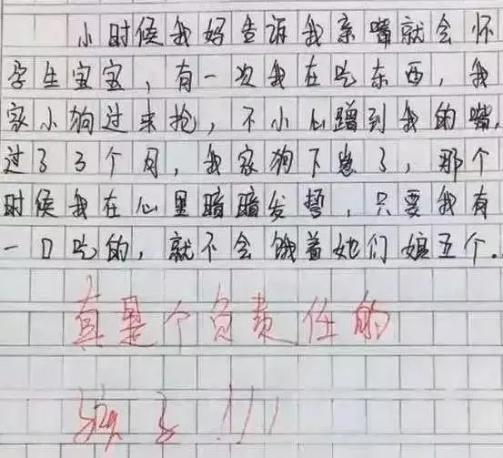 小时候我妈告诉我亲嘴就会怀
孕生宝宝，有一次我在吃东西，我
家小狗过来抢，不小心蹭到我的嘴，
过了3个月，我家狗下崽了，那个
时候我在心里暗暗发誓，只要我有
一口吃的，就不会饿着她们娘五个。
真是个负责任的
孩子！！！